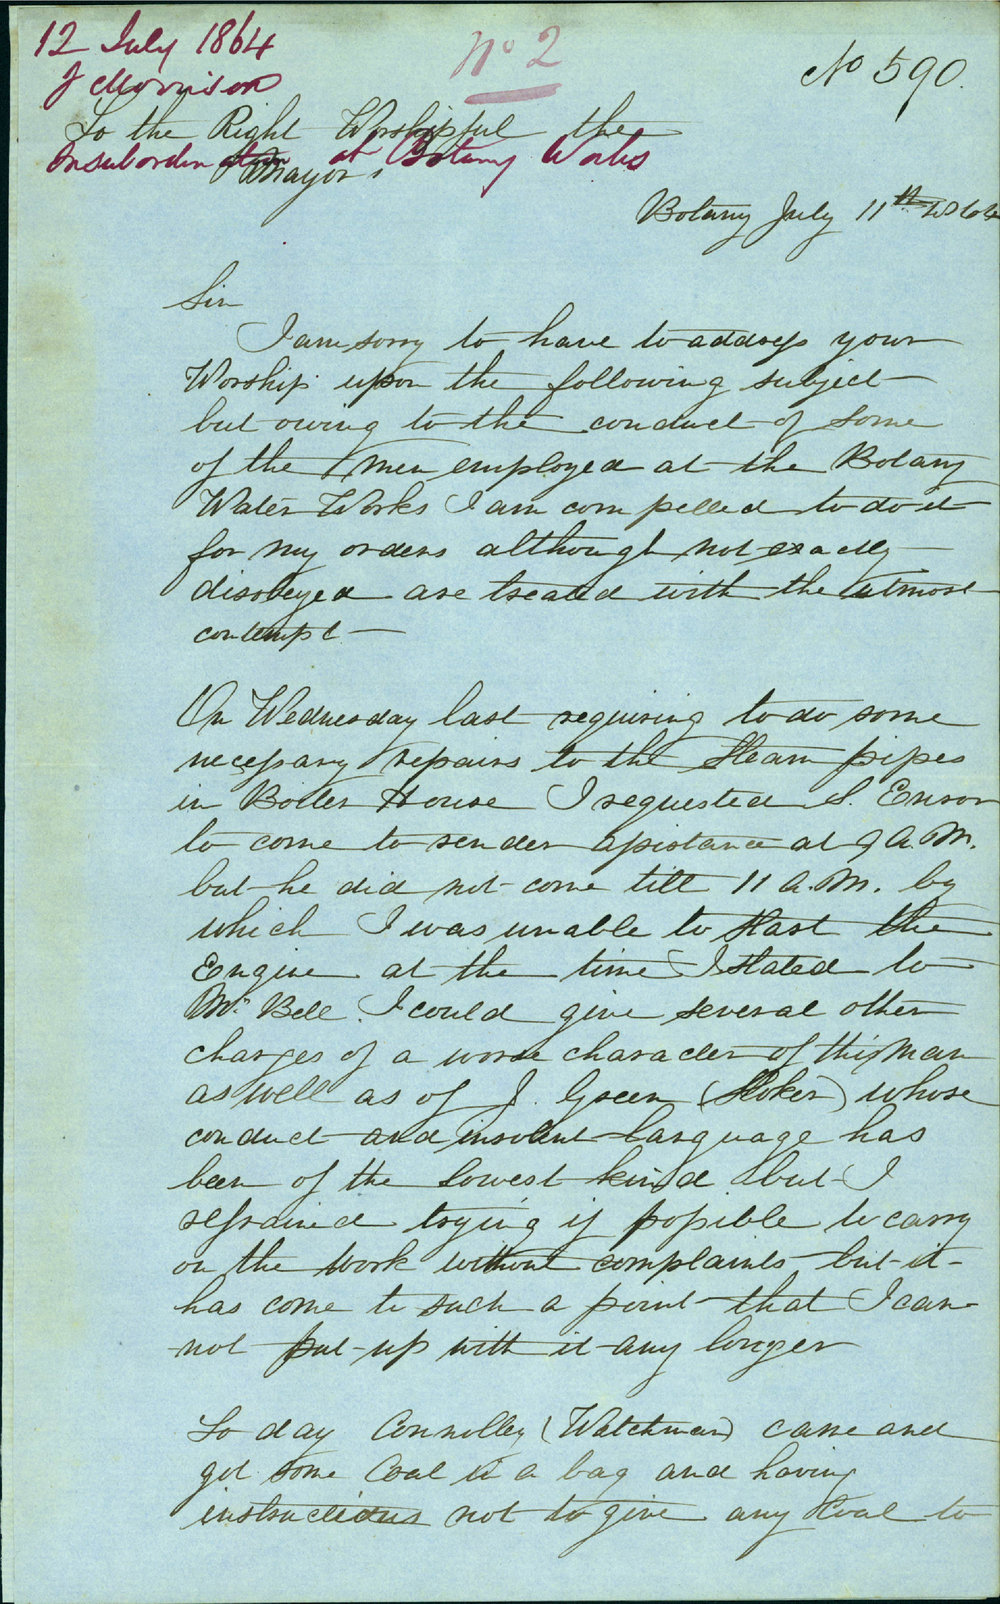 12 July 1864
J Morrison
No 2
No 590.
To the Right Worshipful the
Insubordination at Botany Works
Mayor,
Botany July 11th 1864
Sir
I am sorry to have to address your
Worship upon the following subject
but owing to the conduct of some
of the men employed at the Botany
Water Works I am compelled to do it
for my orders although not exactly
disobeyed are treated with the utmost
contempt —
On Wednesday last requiring to do some
necessary repairs to the Steam pipes
in Boiler House I requested S. Enson
to come to render assistance at 9 A.M.
but he did not come till 11 A.M. by
which I was unable to Start the
Engine at the time I stated to
Mr Bell. I could give several other
charges of a worse character of this man
as well as of J. Green (Stoker) whose
conduct and insolent language has
been of the lowest kind but I
refrained trying if possible to carry
on the work without complaints but it
has come to such a point that I can
not put up with it any longer
To day Connolley (Watchman) came and
got some Coal in a bag and having
instructions not to give any Coal to